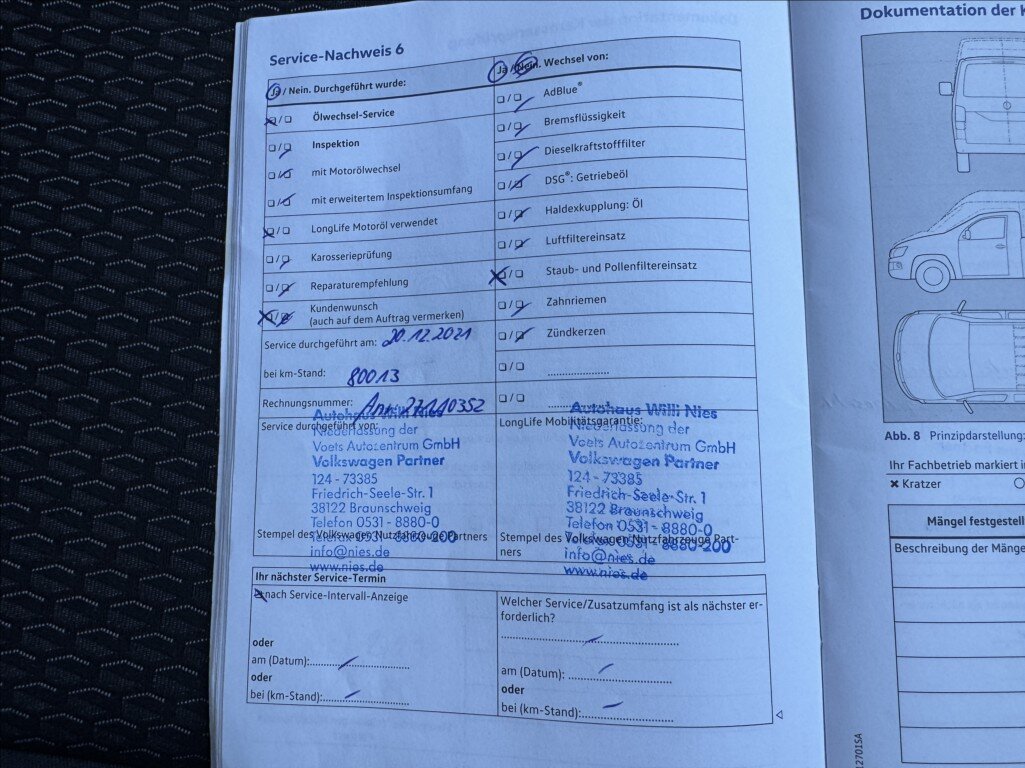 Service-Nachweis 6
Ja / Nein. Durchgeführt wurde:
Ölwechsel-Service
Inspektion
mit Motorölwechsel
mit erweitertem Inspektionsumfang
LongLife Motoröl verwendet
Karosserieprüfung
Reparaturempfehlung
Kundenwunsch
(auch auf dem Auftrag vermerken)
Service durchgeführt am: 20.12.2021
bei km-Stand: 80013
Rechnungsnummer:
Service durchgeführt von:
Autohaus Willi Nies
Niederlassung der
Voets Autozentrum GmbH
Volkswagen Partner
124 - 73385
Friedrich-Seele-Str. 1
38122 Braunschweig
Telefon 0531 - 8880-0
Telefax 0531 - 8880-200
Stempel des Volkswagen Nutzfahrzeuge Partners
info@nies.de
www.nies.de
Ja / Nein. Wechsel von:
AdBlue®
Bremsflüssigkeit
Dieselkraftstofffilter
DSG®: Getriebeöl
Haldexkupplung: Öl
Luftfiltereinsatz
Staub- und Pollenfiltereinsatz
Zahnriemen
Zündkerzen
LongLife Mobilitätsgarantie:
Autohaus Willi Nies
Niederlassung der
Voets Autozentrum GmbH
Volkswagen Partner
124 - 73385
Friedrich-Seele-Str. 1
38122 Braunschweig
Telefon 0531 - 8880-0
Telefax 0531 - 8880-200
Stempel des Volkswagen Nutzfahrzeuge Part-
ners
info@nies.de
www.nies.de
Ihr nächster Service-Termin
nach Service-Intervall-Anzeige
oder
am (Datum):
oder
bei (km-Stand):
Welcher Service/Zusatzumfang ist als nächster er-
forderlich?
am (Datum):
oder
bei (km-Stand):
Dokumentation der
Abb. 8 Prinzipdarstellung:
Ihr Fachbetrieb markiert
Kratzer
Mängel festgestell
Beschreibung der Mänge
12701SA